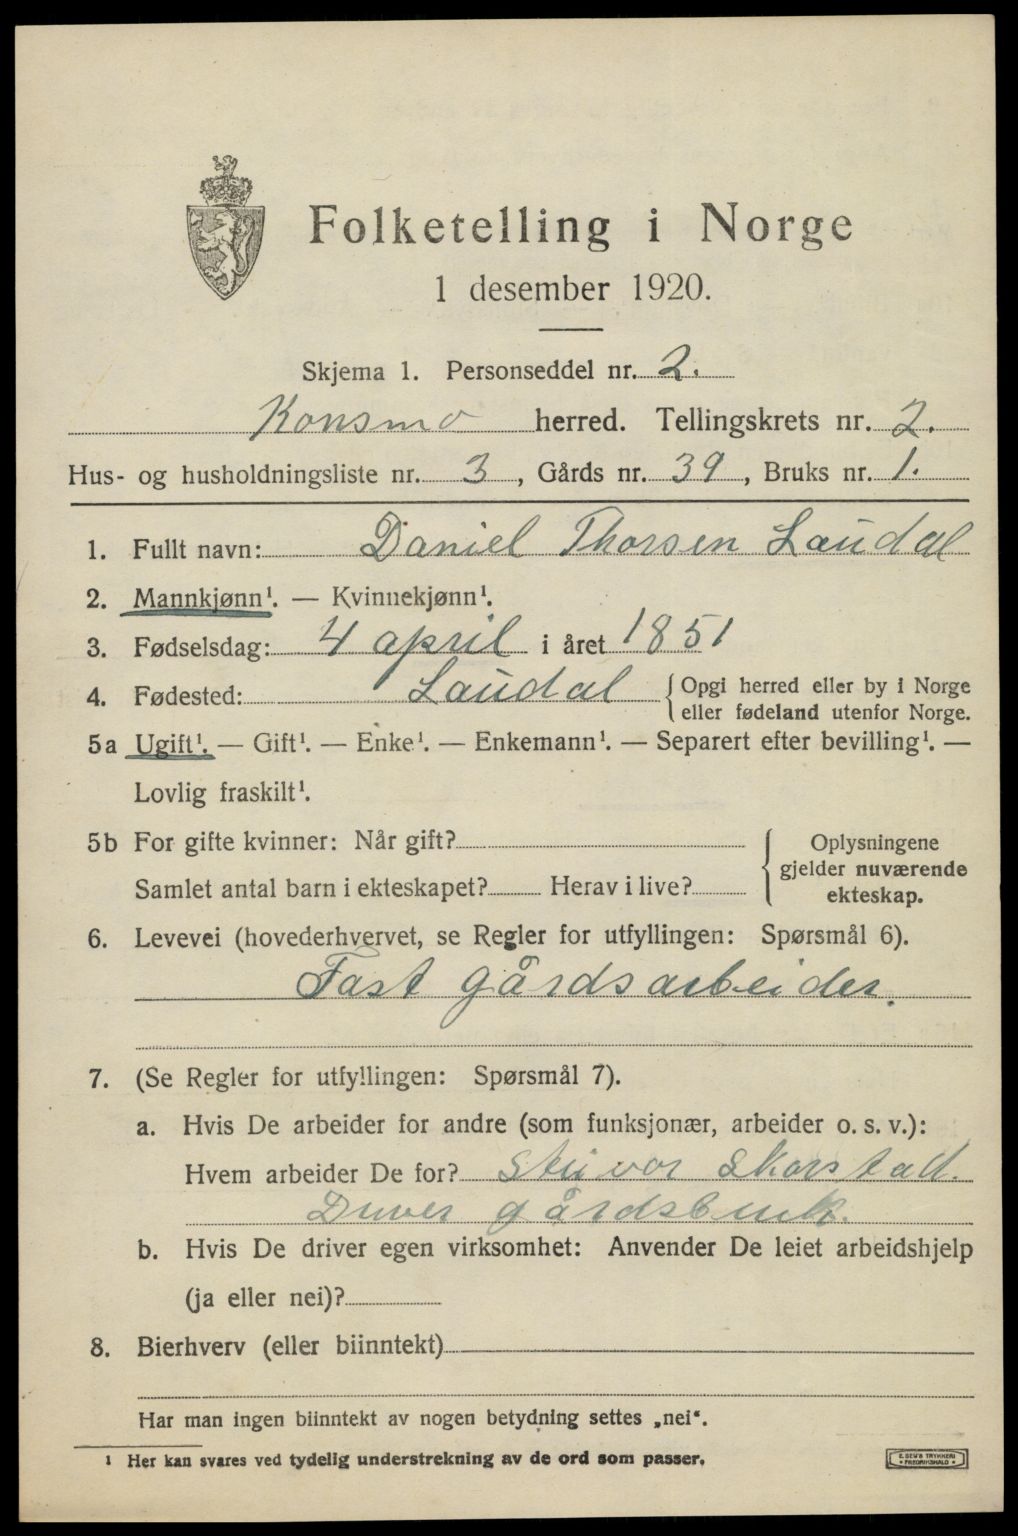 Folketelling i Norge
1 desember 1920.
Skjema 1. Personseddel nr. 2.
Konsmo herred. Tellingskrets nr. 2.
Hus- og husholdningsliste nr. 3, Gårds nr. 39, Bruks nr. 1.
1. Fullt navn: Daniel Thorsen Laudal
2. Mannkjønn¹. — Kvinnekjønn¹.
3. Fødselsdag: 4 april i året 1851
4. Fødested: Laudal { Opgi herred eller by i Norge
eller fødeland utenfor Norge.
5a Ugift¹. — Gift¹. — Enke¹. — Enkemann¹. — Separert efter bevilling¹. —
Lovlig fraskilt¹.
5b For gifte kvinner: Når gift?
Samlet antal barn i ekteskapet? Herav i live?
Oplysningene
gjelder nuværende
ekteskap.
6. Levevei (hovederhvervet, se Regler for utfyllingen: Spørsmål 6).
Fast gårdsarbeider.
7. (Se Regler for utfyllingen: Spørsmål 7).
a. Hvis De arbeider for andre (som funksjonær, arbeider o. s. v.):
Hvem arbeider De for? Skorstad.
Driver gårdsbruk.
b. Hvis De driver egen virksomhet: Anvender De leiet arbeidshjelp
(ja eller nei)?
8. Bierhverv (eller biinntekt)
Har man ingen biinntekt av nogen betydning settes „nei“.
¹ Her kan svares ved tydelig understrekning av de ord som passer.